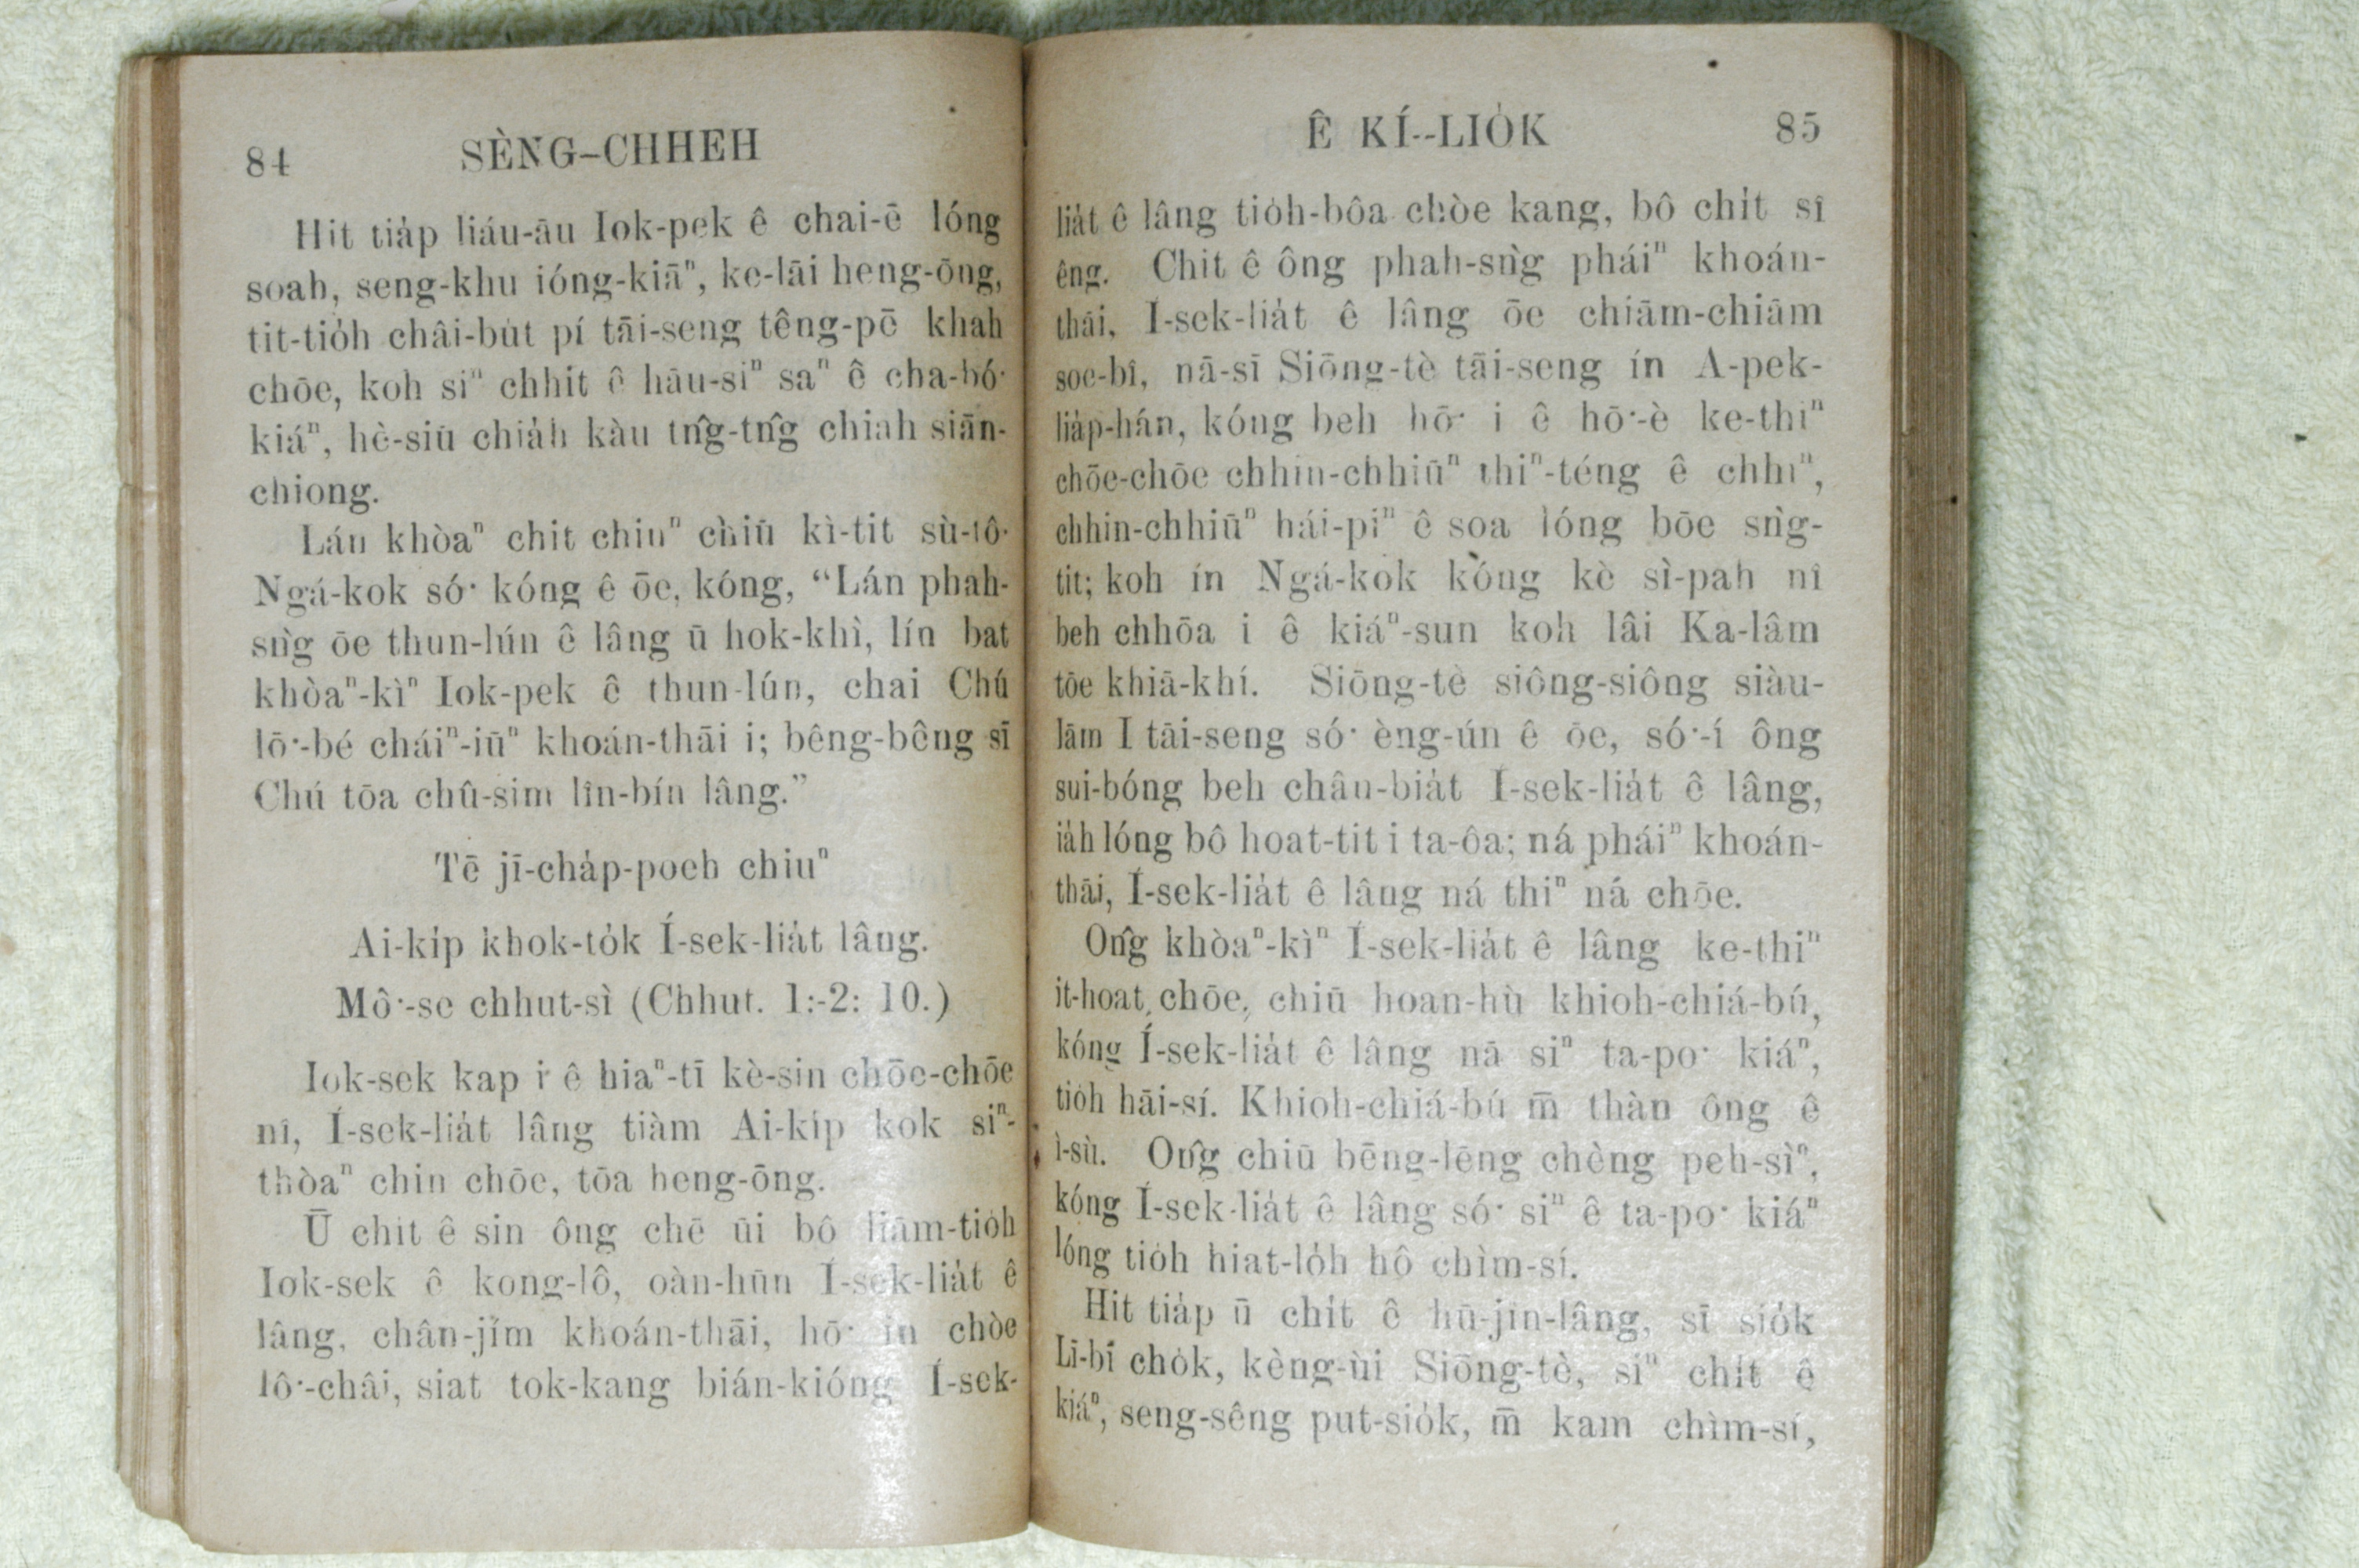 84 SÈNG-CHHEH
Hit tia̍p liáu-āu Iok-pek ê chai-ē lóng
soah, seng-khu ióng-kiāⁿ, ke-lāi heng-ōng,
tit-tio̍h châi-bu̍t pí tāi-seng têng-pē khah
chōe, koh siⁿ chhit ê hāu-siⁿ saⁿ ê cha-bó͘
kiáⁿ, hè-siū chia̍h kàu tn̂g-tn̂g chiah siān-
chiong.
Lán khòaⁿ chit chiuⁿ chiū kì-tit sù-tô͘
Ngá-kok só͘ kóng ê ōe, kóng, “Lán phah-
sǹg ōe thun-lún ê lâng ū hok-khì, lín bat
khòaⁿ-kìⁿ Iok-pek ê thun-lún, chai Chú
lō͘-bé cháiⁿ-iūⁿ khoán-thāi i; bêng-bêng sī
Chú tōa chû-sim lîn-bín lâng.”
Tē jī-cha̍p-poeh chiuⁿ
Ai-ki̍p khok-to̍k Í-sek-lia̍t lâng.
Mô͘-se chhut-sì (Chhut. 1:-2: 10.)
Iok-sek kap i ê hiaⁿ-tī kè-sin chōe-chōe
nî, Í-sek-lia̍t lâng tiàm Ai-ki̍p kok siⁿ-
thòaⁿ chin chōe, tōa heng-ōng.
Ū chi̍t ê sin ông chē ūi bô liām-tio̍h
Iok-sek ê kong-lô, oàn-hūn Í-sek-lia̍t ê
lâng, chân-jím khoán-thāi, hō͘ in chòe
lô͘-châi, siat tok-kang bián-kióng Í-sek-
Ê KÍ--LIO̍K 85
lia̍t ê lâng tio̍h-bôa chòe kang, bô chi̍t sî
êng. Chit ê ông phah-sǹg pháiⁿ khoán-
thāi, Í-sek-lia̍t ê lâng ōe chiām-chiām
soe-bî, nā-sī Siōng-tè tāi-seng ín A-pek-
lia̍p-hán, kóng beh hō͘ i ê hō͘-è ke-thiⁿ
chōe-chōe chhin-chhiūⁿ thiⁿ-téng ê chhiⁿ,
chhin-chhiūⁿ hái-piⁿ ê soa lóng bōe sǹg-
tit; koh ín Ngá-kok kóng kè sì-pah nî
beh chhōa i ê kiáⁿ-sun koh lâi Ka-lâm
tōe khiā-khí. Siōng-tè siông-siông siàu-
lām I tāi-seng só͘ èng-ún ê ōe, só͘-í ông
sui-bóng beh châu-bia̍t Í-sek-lia̍t ê lâng,
ia̍h lóng bô hoat-tit i ta-ôa; ná pháiⁿ khoán-
thāi, Í-sek-lia̍t ê lâng ná thiⁿ ná chōe.
Ông khòaⁿ-kìⁿ Í-sek-lia̍t ê lâng ke-thiⁿ
it-hoat chōe, chiū hoan-hù khioh-chiá-bú,
kóng Í-sek-lia̍t ê lâng nā siⁿ ta-po͘ kiáⁿ,
tio̍h hāi-sí. Khioh-chiá-bú m̄ thàn ông ê
ì-sù. Ông chiū bēng-lēng chèng peh-sìⁿ,
kóng Í-sek-lia̍t ê lâng só͘ siⁿ ê ta-po͘ kiáⁿ
lóng tio̍h hiat-lo̍h hô chìm-sí.
Hit tia̍p ū chi̍t ê hū-jîn-lâng, sī sio̍k
Lī-bī cho̍k, kèng-ùi Siōng-tè, siⁿ chi̍t ê
kiáⁿ, seng-sêng put-sio̍k, m̄ kam chìm-sí,